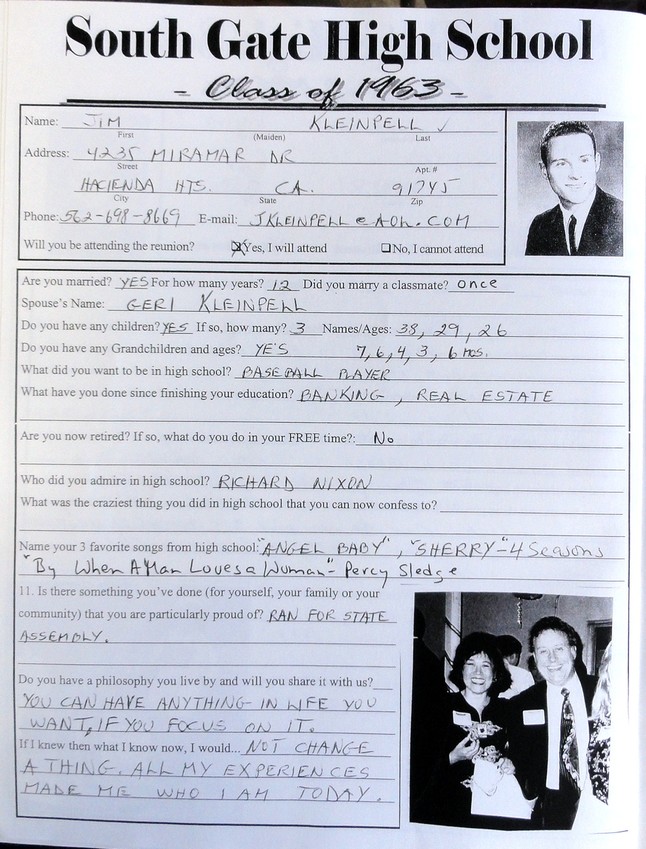 South Gate High School
- Class of 1963 -
Name: JIM KLEINPELL ✓
First (Maiden) Last
Address: 4235 MIRAMAR DR
Street Apt. #
HACIENDA HTS. CA. 91745
City State Zip
Phone: 562-698-8669 E-mail: JKLEINPELL@AOL.COM
Will you be attending the reunion? ☒Yes, I will attend ☐No, I cannot attend
Are you married? YES For how many years? 12 Did you marry a classmate? once
Spouse's Name: GERI KLEINPELL
Do you have any children? YES If so, how many? 3 Names/Ages: 38, 29, 26
Do you have any Grandchildren and ages? YES 7, 6, 4, 3, 6 mos.
What did you want to be in high school? BASEBALL PLAYER
What have you done since finishing your education? BANKING, REAL ESTATE
Are you now retired? If so, what do you do in your FREE time?: No
Who did you admire in high school? RICHARD NIXON
What was the craziest thing you did in high school that you can now confess to?
Name your 3 favorite songs from high school: "ANGEL BABY", "SHERRY"-4 Seasons
"By When A Man Loves a Woman"- Percy Sledge
11. Is there something you've done (for yourself, your family or your
community) that you are particularly proud of? RAN FOR STATE
ASSEMBLY.
Do you have a philosophy you live by and will you share it with us?
YOU CAN HAVE ANYTHING IN LIFE YOU
WANT, IF YOU FOCUS ON IT.
If I knew then what I know now, I would... NOT CHANGE
A THING. ALL MY EXPERIENCES
MADE ME WHO I AM TODAY.